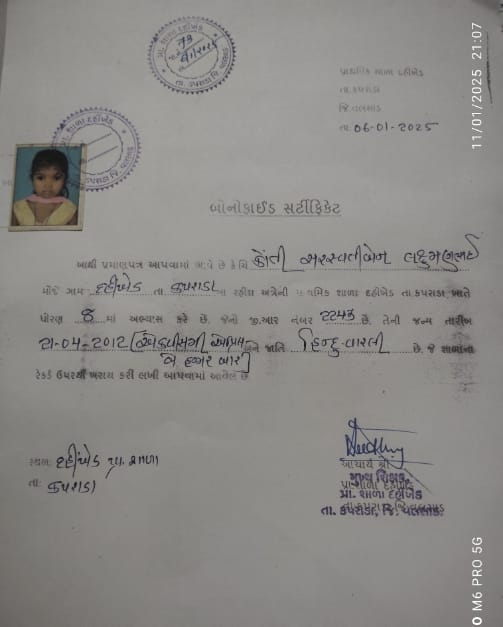 પ્રાથમિક શાળા દહીંખેડ
તા.કપરાડા
જિ.વલસાડ
તા. 06-01-2025
પ્રા. શાળા દહીંખેડ
તા. કપરાડા જિ. વલસાડ
પ્રા. શાળા દહીંખેડ
તા. કપરાડા જિ. વલસાડ
બોનોફાઈડ સર્ટીફિકેટ
આથી પ્રમાણપત્ર આપવામાં આવે છે કે ચિ સરસ્વતીબેન
મોજે ગામ દહીંખેડ તા કપરાડા ના રહીશ અત્રેની પ્રાથમિક શાળા દહીંખેડ તા.કપરાડા ખાતે
ધોરણ 8 માં અભ્યાસ કરે છે. જેનો જી.આર નંબર 2243 છે. તેની જન્મ તારીખ
21-04-2012 [એકવીસમી એપ્રિલ અને જાતિ હિન્દુ-વારલી છે. જે શાળાના
બે હજાર બાર]
રેકર્ડ ઉપરથી ખરાઇ કરી લખી આપવામાં આવેલ છે
સ્થળ: દહીંખેડ પ્રા. શાળા
તા: કપરાડા
આચાર્ય શ્રી
મુખ્ય શિક્ષક,
પ્રા.શાળા દહીંખેડ
પ્રા. શાળા દહીંખેડ
તા. કપરાડા, જિ. વલસાડ.
11/01/2025 21:07
M6 PRO 5G